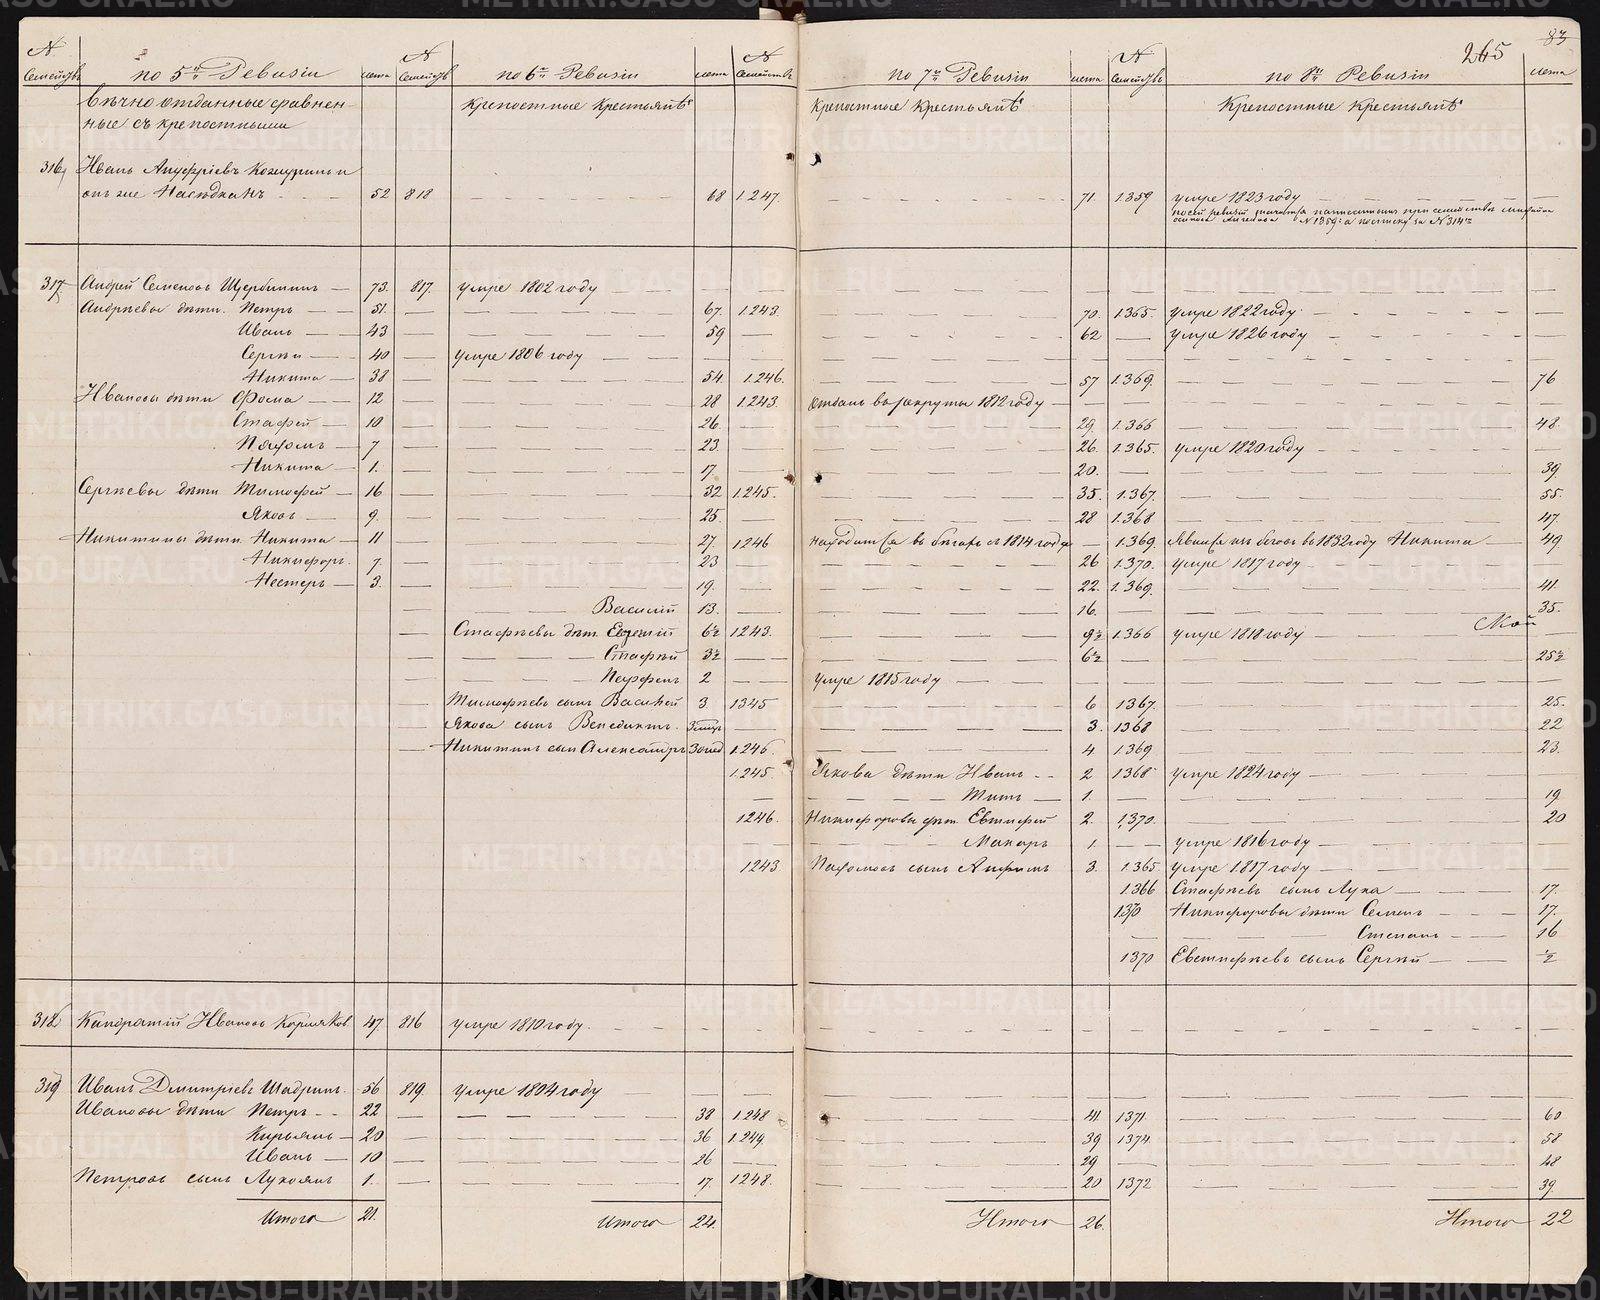 245 83
№ семействъ по 5й Ревизіи лета № семействъ по 6й Ревизіи лета № семействъ по 7й Ревизіи лета № семействъ по 8й Ревизіи лета
вѣчно отданные сравнен- крепостные крестьянѣ крепостные крестьянѣ Крепостные крестьянѣ
ные съ крепостными
316 Иванъ Ануфріевъ Кожуринъ и
онъ же Наседканъ 52 818 68 1247. 71. 1359 умре 1823 году
№ 1359 № 314
317 Андрей Семеновъ Щербининъ 73. 817. умре 1802 году
Андреевы дѣти. Петръ 51. 67. 1243. 70. 1365. умре 1822 году
Иванъ 43 59 62 умре 1826 году
Сергѣй 40 умре 1806 году
Никита 38 54. 1246. 57 1369. 76
Ивановы дѣти Фома 12 28 1243. отданъ въ рекруты 1812 году
Стафей 10 26. 29. 1366 48.
Пахомъ 7 23. 26. 1365. умре 1820 году
Никита 1. 17. 20. 39.
Сергѣевы дѣти Тимофей 16 32 1245. 35. 1367. 55.
Яковъ 9. 25. 28 1368 47.
Никитины дѣти. Никита 11 27. 1246 находится въ бегахъ с 1814 года 1369. явился изъ бѣговъ въ 1832 году Никита 49
Никифоръ. 7. 23 26 1370. умре 1817 году
Нестеръ 3. 19. 22. 1369. 41.
Василій 13. 16. 35.
Стафѣевы дѣт. Евгеній 6½ 1243. 9½ 1366 умре 1818 году
Стафѣй 3½ 6½ 25½
Парфенъ 2 умре 1815 году
Тимофѣевъ сынъ Василей 3 1345 6 1367. 25.
Якова сынъ Венедиктъ 3. 1368 22
Никитинъ сын Александръ 1246. 4 1369 23.
1245. Якова дѣти Иванъ 2 1368 умре 1824 году
Титъ 1. 19
1246. Никифоровы дѣт. Евстифей 2. 1370. 20
Макаръ 1. умре 1816 году
1243 Пахомовъ сынъ Анфимъ 3. 1365 умре 1817 году
1366 Стафѣевъ сынъ Лука 17.
1370 Никифоровы дѣти Семенъ 17.
Степанъ 16
1370 Евстифѣевъ сынъ Сергѣй ½
318 Кандратій Ивановъ Корляков. 47. 816 умре 1810 году.
319 Иванъ Дмитріевъ Шадринъ. 56 819. умре 1804 году
Ивановы дѣти Петръ 22 38 1248 41. 1371. 60.
Кирьянъ 20 36 1249 39 1374. 58
Иванъ 10 26 29 48
Петровъ сынъ Лукоянъ 1. 17. 1248. 20 1372 39.
Итого 21. Итого 24. Итого 26. Итого 22
METRIKI.GASO-URAL.RU